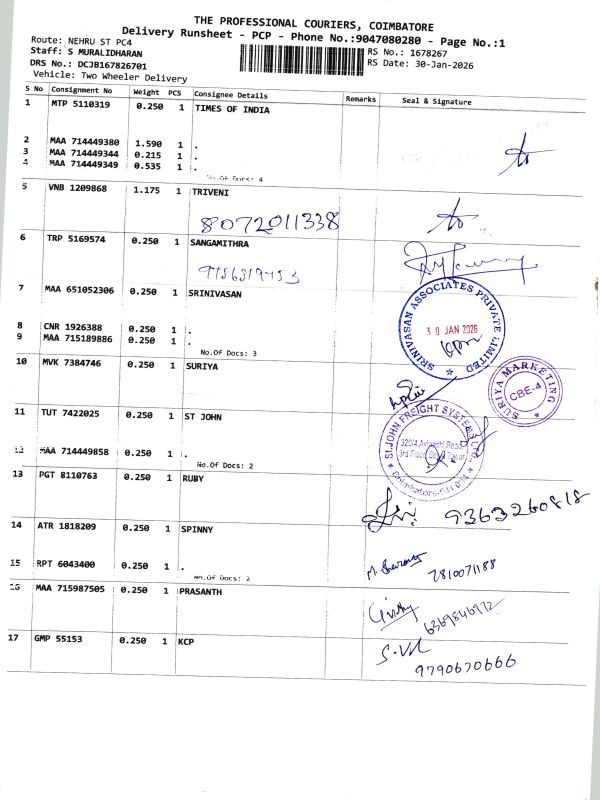 THE PROFESSIONAL COURIERS, COIMBATORE
Delivery Runsheet - PCP - Phone No.:9047080280 - Page No.:1
Route: NEHRU ST PC4 RS No.: 1678267
Staff: S MURALIDHARAN RS Date: 30-Jan-2026
DRS No.: DCJB167826701
Vehicle: Two Wheeler Delivery
S No Consignment No Weight PCS Consignee Details Remarks Seal & Signature
1 MTP 5110319 0.250 1 TIMES OF INDIA
2 MAA 714449380 1.590 1 .
3 MAA 714449344 0.215 1 .
4 MAA 714449349 0.535 1 .
No.Of Docs: 4
5 VNB 1209868 1.175 1 TRIVENI
8072011338
6 TRP 5169574 0.250 1 SANGAMITHRA
7 MAA 651052306 0.250 1 SRINIVASAN
SRINIVASAN ASSOCIATES PRIVATE LIMITED
30 JAN 2026
8 CNR 1926388 0.250 1 .
9 MAA 715189886 0.250 1 .
No.Of Docs: 3
10 MVK 7384746 0.250 1 SURIYA
SURIYA MARKETING
CBE-4
11 TUT 7422025 0.250 1 ST JOHN
St.JOHN FREIGHT SYSTEMS LTD
12 MAA 714449858 0.250 1 .
No.Of Docs: 2
13 PGT 8110763 0.250 1 RUBY
9363260818
14 ATR 1818209 0.250 1 SPINNY
15 RPT 6043400 0.250 1 .
7810071188
No.Of Docs: 2
16 MAA 715987505 0.250 1 PRASANTH
6369846972
17 GMP 55153 0.250 1 KCP
9790670666